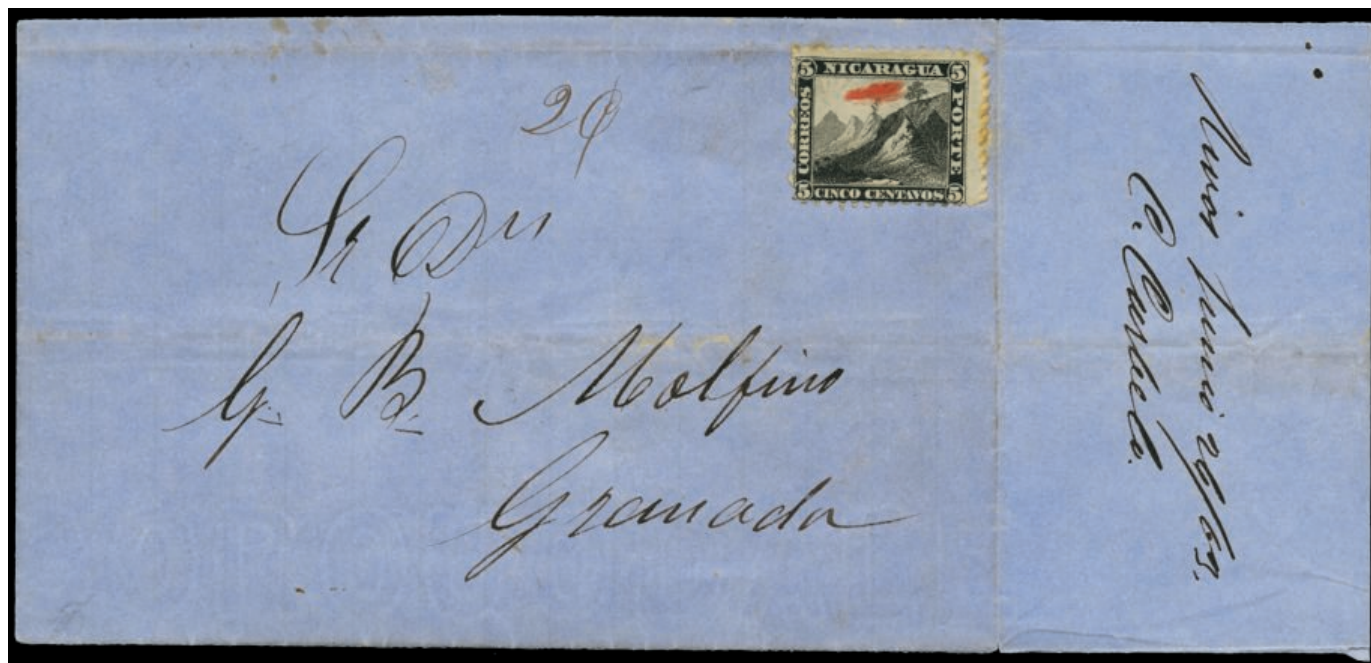 5 NICARAGUA 5
CORREOS
PORTE
5 CINCO CENTAVOS 5
Sr Dn
G. B. Molfino
Granada
Junio 26/69.